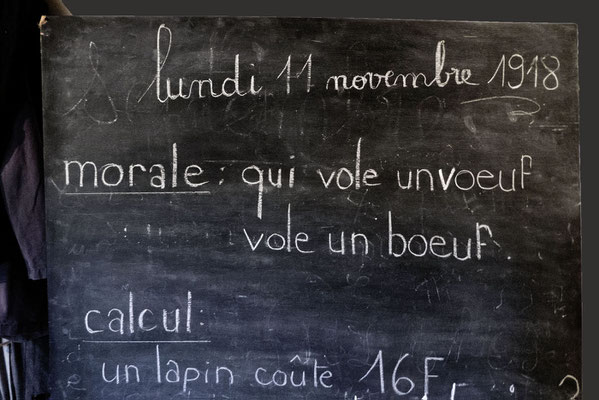 lundi 11 novembre 1918
morale : qui vole un voeuf
vole un boeuf.
calcul:
un lapin coûte 16F